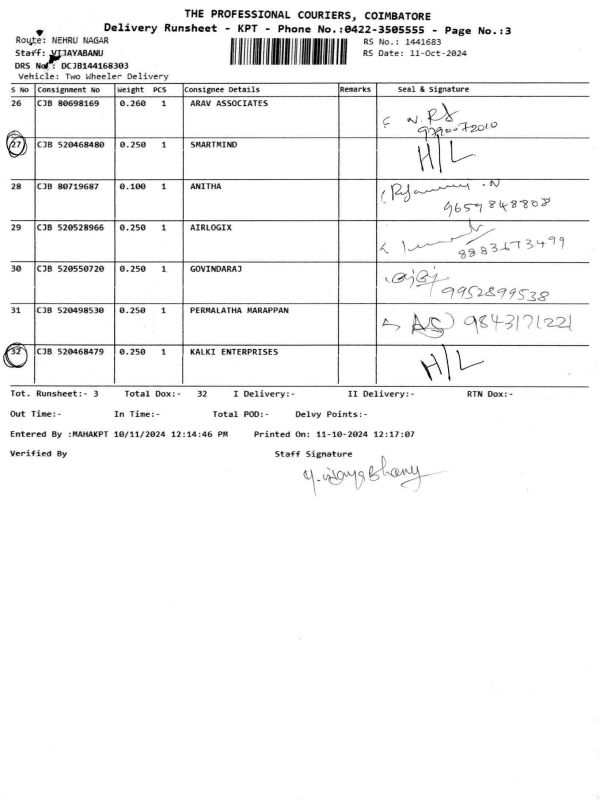 THE PROFESSIONAL COURIERS, COIMBATORE
Delivery Runsheet - KPT - Phone No.:0422-3505555 - Page No.:3
Route: NEHRU NAGAR
RS No.: 1441683
Staff: VIJAYABANU
RS Date: 11-Oct-2024
DRS No : DCJB144168303
Vehicle: Two Wheeler Delivery
S No Consignment No Weight PCS Consignee Details Remarks Seal & Signature
26 CJB 80698169 0.260 1 ARAV ASSOCIATES
27 CJB 520468480 0.250 1 SMARTMIND H/L
28 CJB 80719687 0.100 1 ANITHA
9659848808
29 CJB 520528966 0.250 1 AIRLOGIX
8883673499
30 CJB 520550720 0.250 1 GOVINDARAJ
9952899538
31 CJB 520498530 0.250 1 PERMALATHA MARAPPAN AS 9843171221
32 CJB 520468479 0.250 1 KALKI ENTERPRISES H/L
Tot. Runsheet:- 3 Total Dox:- 32 I Delivery:- II Delivery:- RTN Dox:-
Out Time:- In Time:- Total POD:- Delvy Points:-
Entered By :MAHAKPT 10/11/2024 12:14:46 PM Printed On: 11-10-2024 12:17:07
Verified By Staff Signature